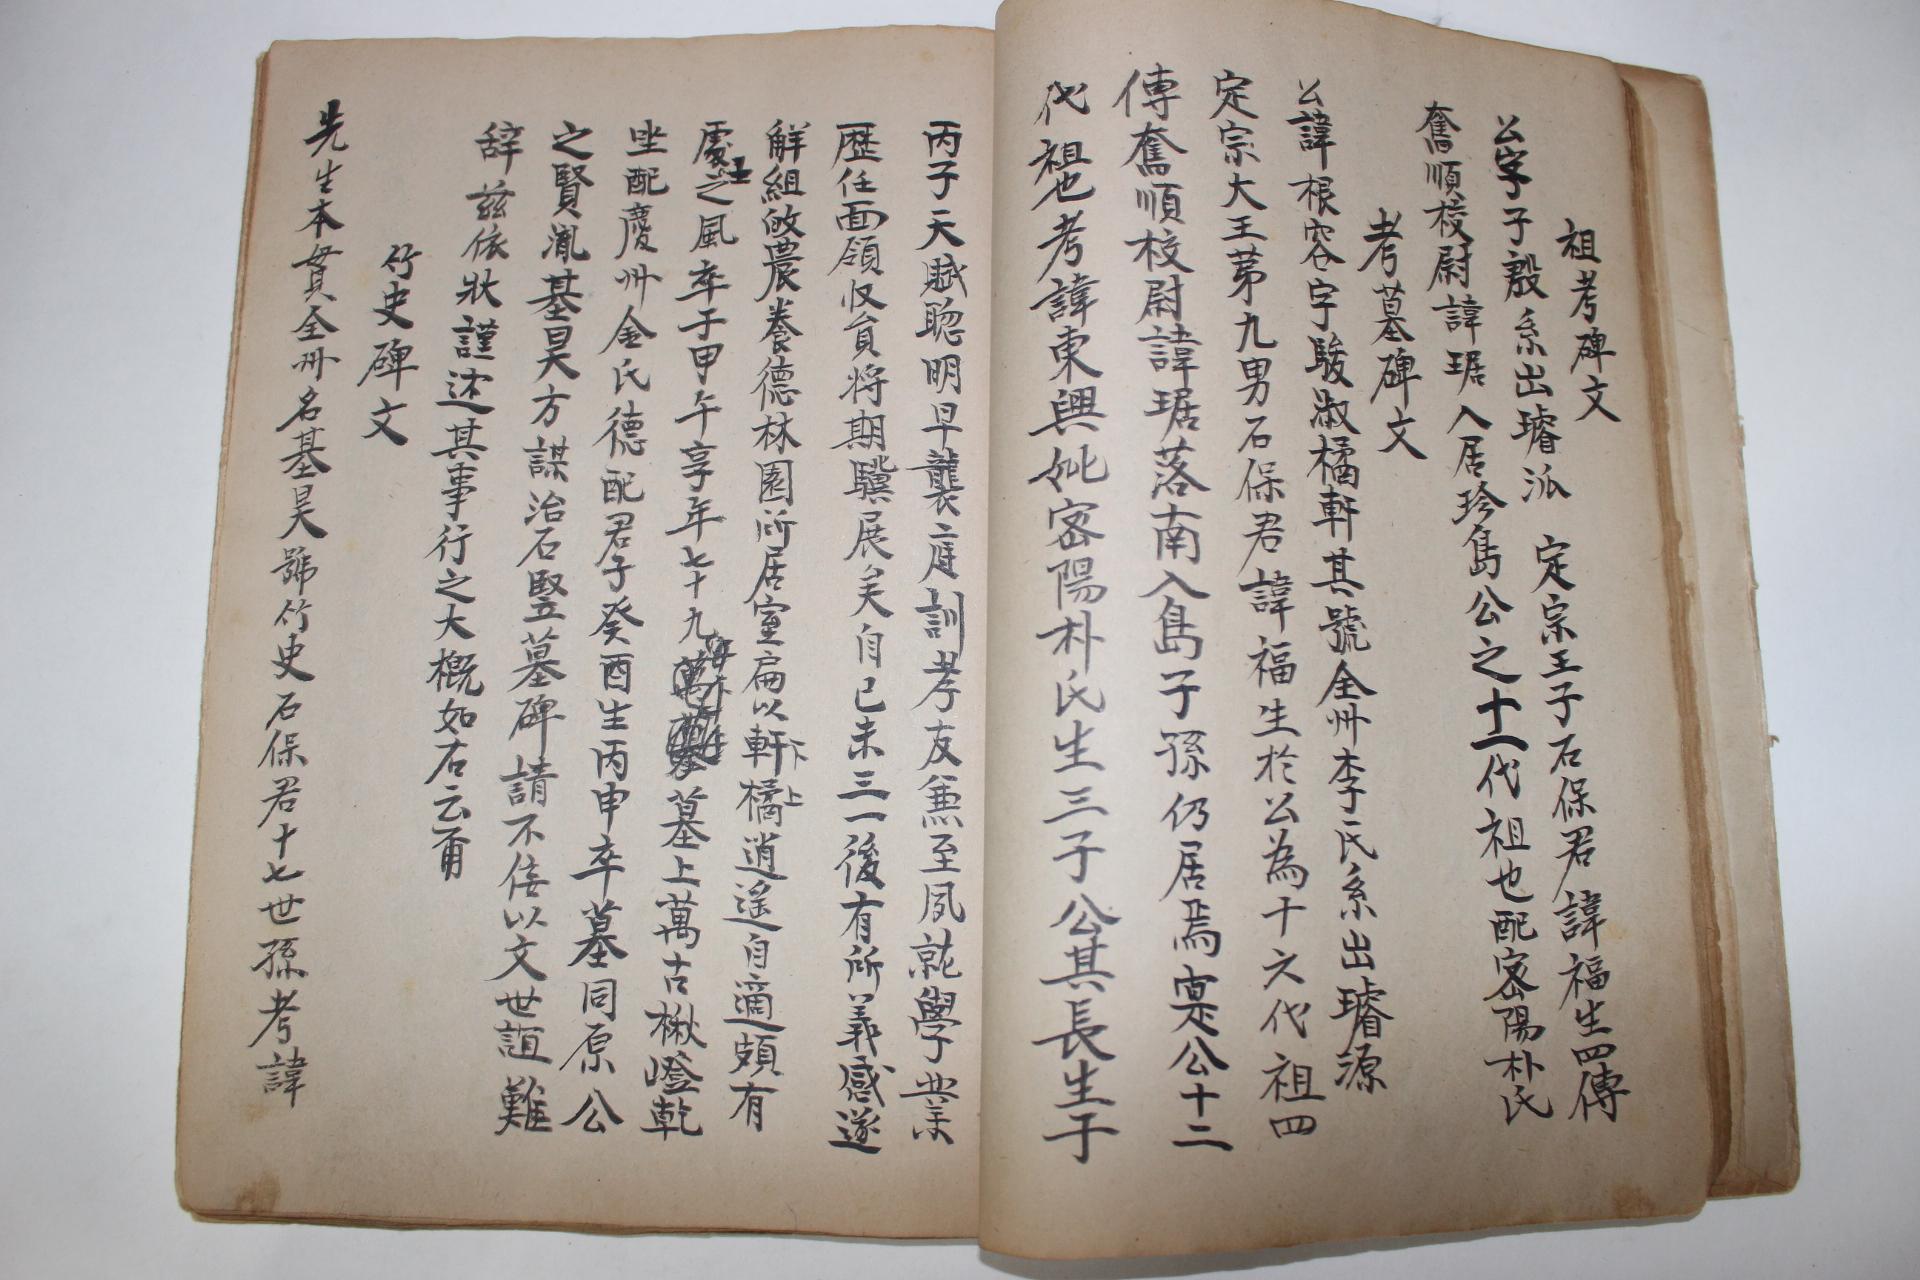 祖考碑文
公字子殷系出璿派　定宗王子石保君諱福生四傳
奮順校尉諱琚入居珍島公之十一代祖也配密陽朴氏
考墓碑文
公諱根容字駿淑橘軒其號全州李氏系出璿源
定宗大王第九男石保君諱福生於公為十六代祖四
傳奮順校尉諱琚落南入島子孫仍居焉寔公十二
代祖也考諱東興妣密陽朴氏生三子公其長生于
丙子天賦聰明早襲庭訓孝友兼至夙就學業
歷任面領収員将期驥展矣自己未三一後有所義感遂
解組啟農養德林園所居室扁以軒下橘上逍遥自適頗有
處士之風卒于甲午享年七十九墓上萬古楸嶝乾
坐配慶州金氏德配君子癸酉生丙申卒墓同原公
之賢胤基昊方謀治石竪墓碑請不佞以文世誼難
辞玆依狀謹述其事行之大概如右云爾
竹史碑文
先生本貫全州名基昊號竹史石保君十七世孫考諱